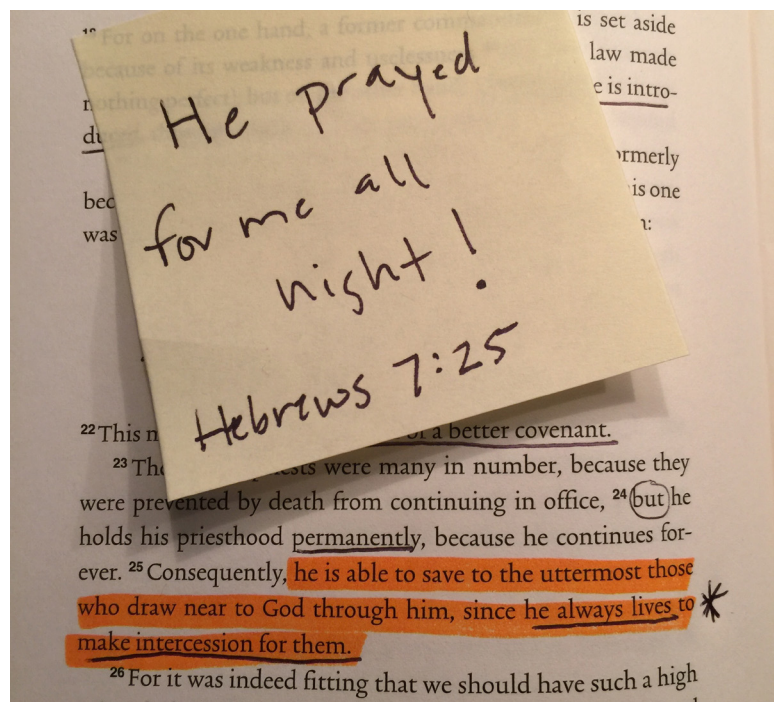 18 For on the one hand, a former is set aside
because of its weakness and uselessness law made
nothing perfect; but e is intro-
du
ormerly
bec is one
was n:
He prayed
for me all
night!
Hebrews 7:25
22 This m of a better covenant.
23 The ests were many in number, because they
were prevented by death from continuing in office, 24 but he
holds his priesthood permanently, because he continues for-
ever. 25 Consequently, he is able to save to the uttermost those
who draw near to God through him, since he always lives to *
make intercession for them.
26 For it was indeed fitting that we should have such a high